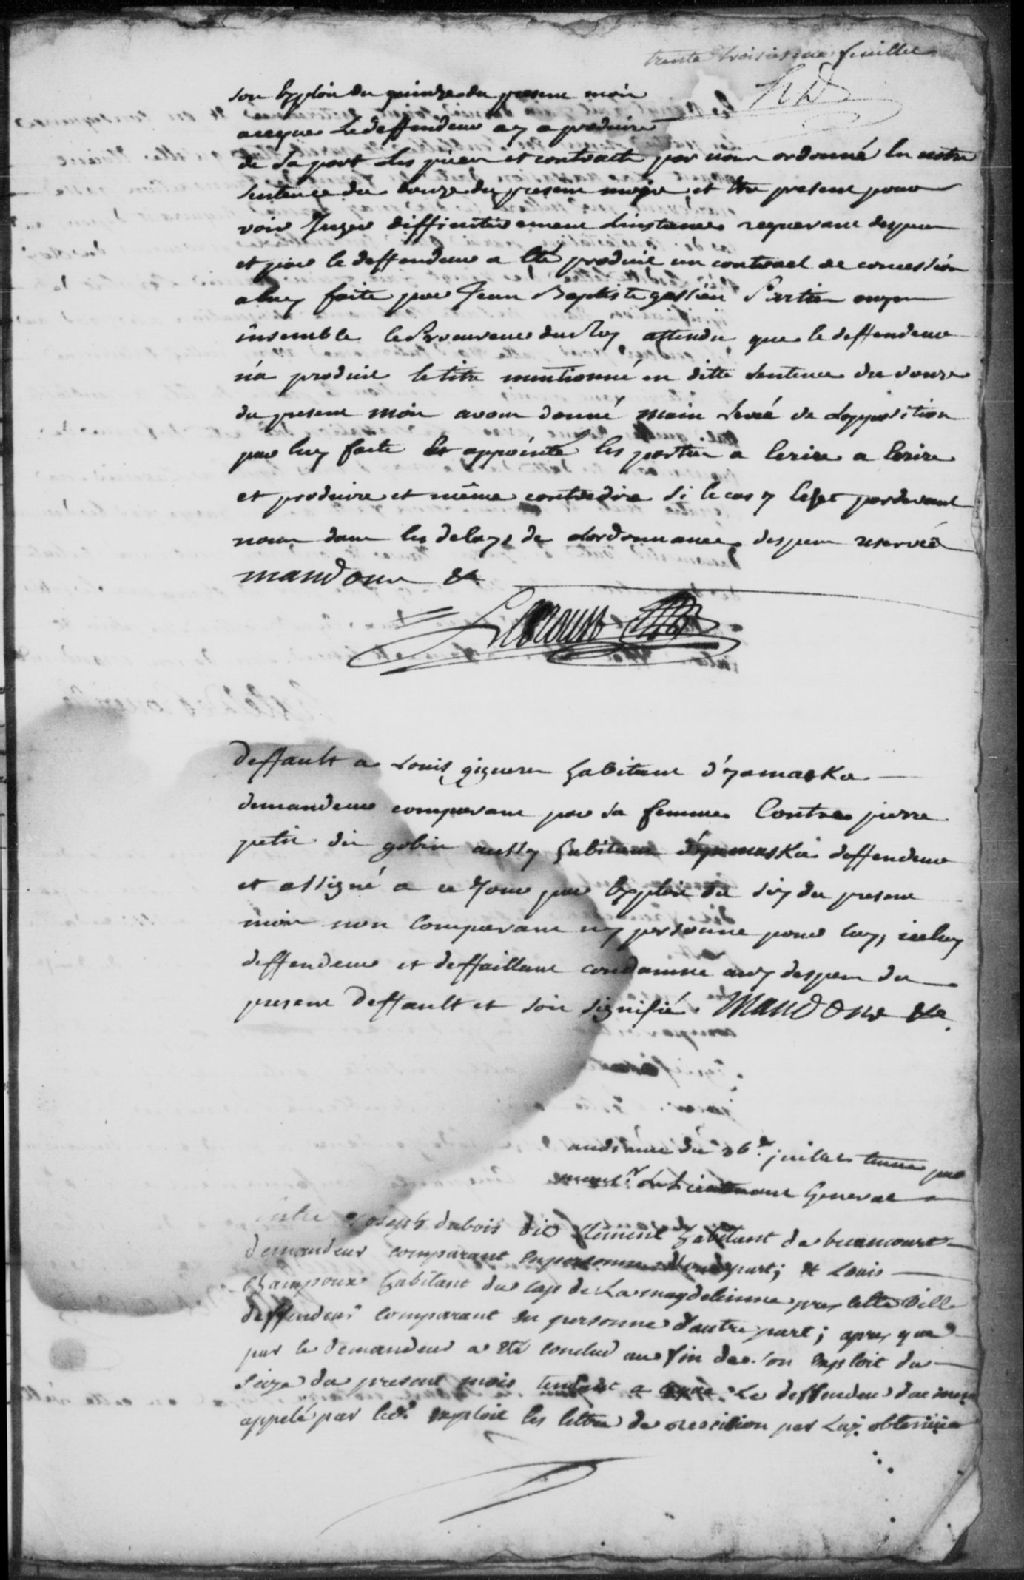 trente troisiesme feuillet
son Exploit du quinze du present mois
aceque Le deffendeur ay a produire
de sa part Les pieces et contracts par nous ordonné En notre
sentence du douze du present mois et Etre present pour
voir Juger diffinitivement Linstance requerant despens
et par le deffendeur a Eté produit un contract de concession
a luy faite par Jean Baptiste Parties ouyes
insemble le Procureur du Roy attendu que le deffendeur
n'a produit le titre mentionné en ditte sentence du douze
du present mois avons donné main Levée de Lopposition
par luy faite Et appointé les parties a Ecrire a Ecrire
et produire et même contredire si le cas y Echet pardevant
nous dans les delays de Lordonnance, despens reservés
mandons &a
deffault a Louis gignere habitant d'yamaska
demandeur comparant par sa femme Contre pierre
petit dit gobin aussy habitant d'yamaska deffendeur
et assigné a ce Jour par Exploit du six du present
mois non Comparant ny personne pour luy, iceluy
deffendeur et deffaillant condamné aux despens du
present deffault et soit signifié. Mandons &a.
audiance du 26e. juillet tenue par
monsr. le Lieutenant General
Entre joseph dubois dit Clément habitant de becancourt
demandeur comparant en personne d'une part; & Louis
Champoux habitant du cap de La magdelainne pres cette Ville
deffendeur comparant en personne d'autre part; apres que
par le demandeur a eté conclud au fin de son exploit du
seize du present mois tendant a Le deffendeur
appelé par led. exploit les lettre de rescision par Luy obtenüe